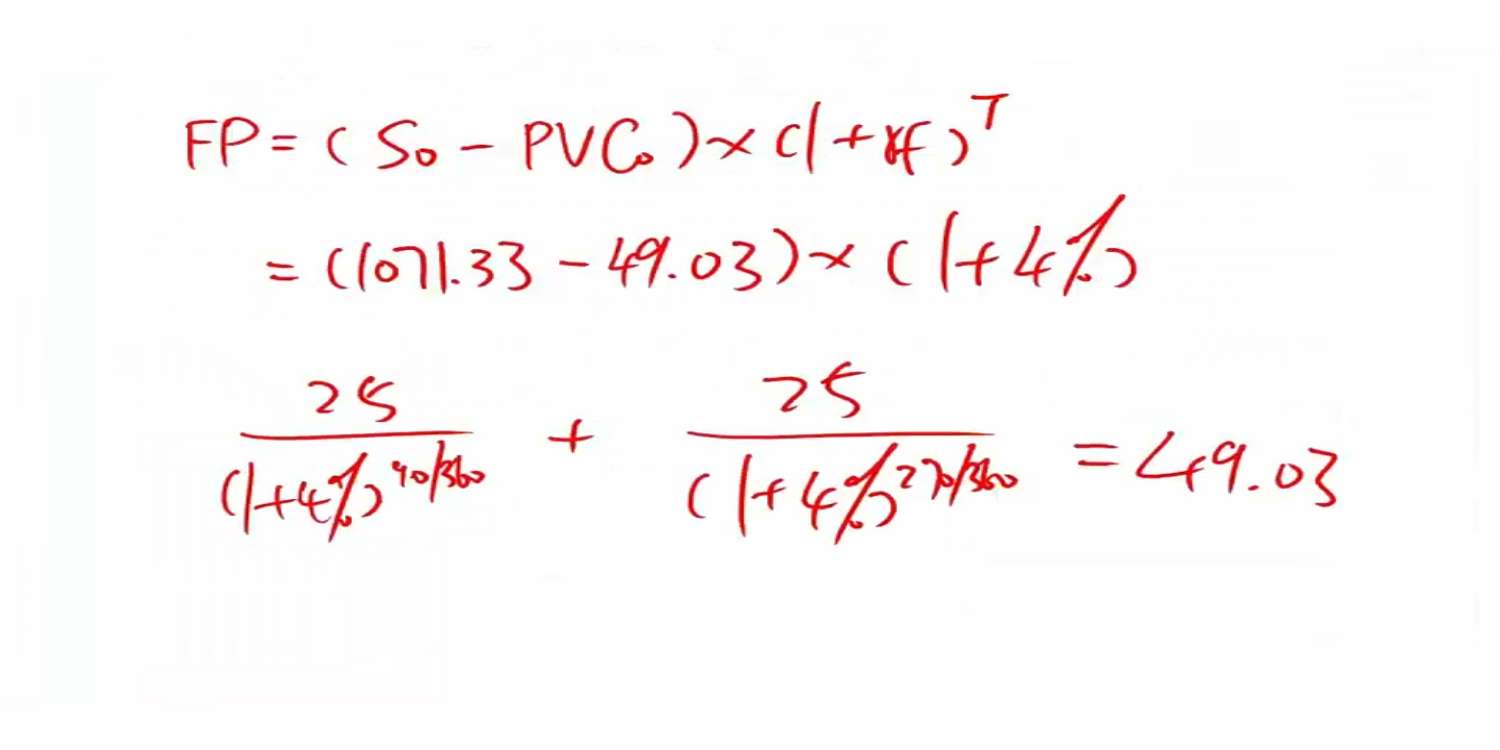 FP = (S₀ - PVC₀) × (1 + rf)ᵀ
= (1071.33 - 49.03) × (1 + 4%)
25/(1+4%)^90/360 + 25/(1+4%)^270/360 = 49.03